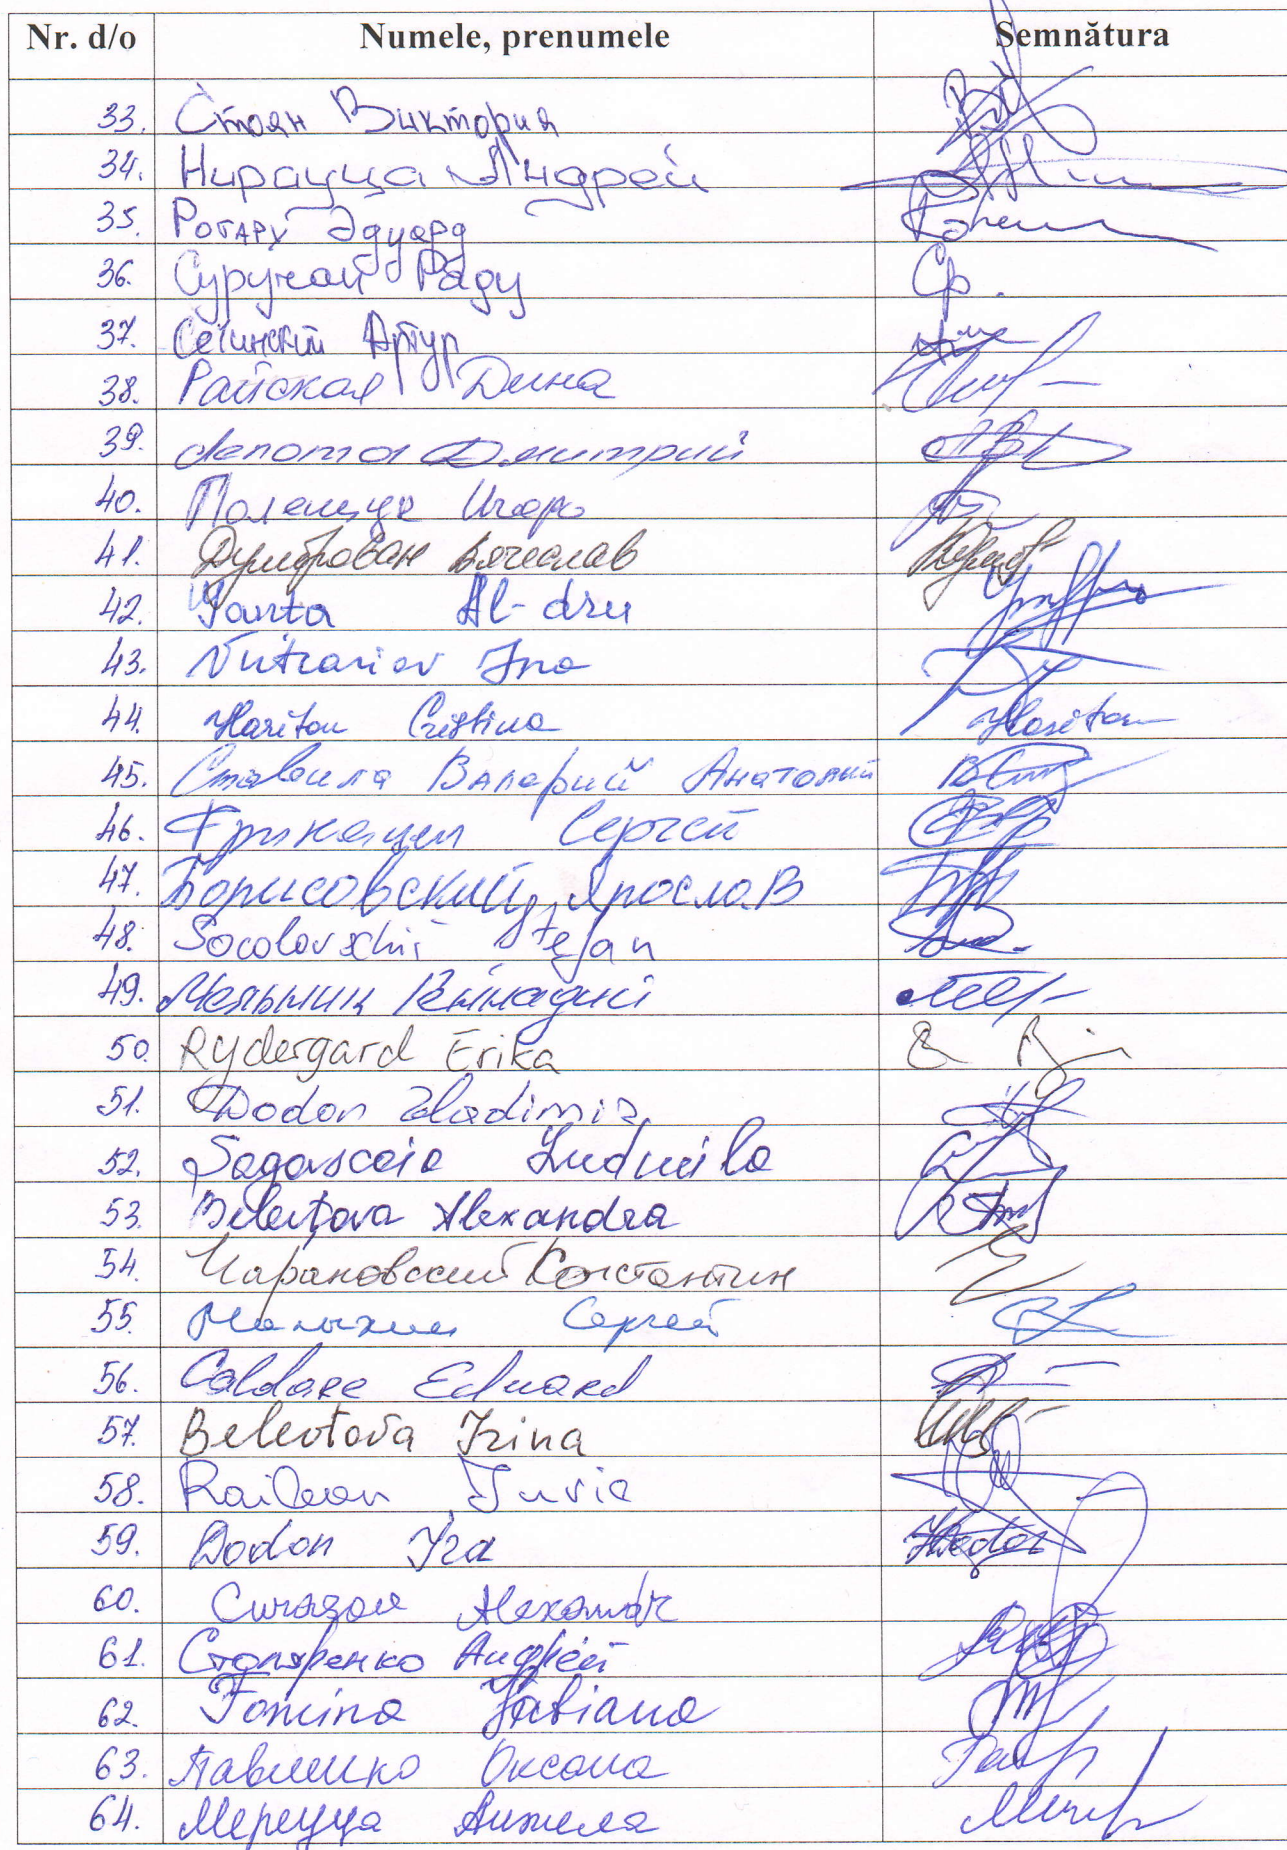 Nr. d/o Numele, prenumele Semnătura
33. Стоян Виктория
34. Нирауца Андрей
35. Ротарь Эдуард
36. Суручан Раду
37. Сечинский Артур
38. Райская Дина
39. Лепота Дмитрий
40. Полещук Игорь
41. Думброван Вячеслав
42. Al-dru
43. Ina
44. Hariton Cristina Hariton
45. Ставила Валерий Анатолий
46. Сергей
47. Борисовский Ярослав
48. Socolovschi Ștefan
49. Мельник Геннадий
50. Rydergard Erika
51. Dodon Vladimir
52. Sagovscaia Ludmila
53. Belevțova Alexandra
54. Чарановский Константин
55. Малыхин Сергей
56. Caldare Eduard
57. Belevțova Irina
58. Railean
59. Dodon Ira
60. Alexandr
61. Столяренко Андрей
62. Fomina Tatiana
63. Павленко Оксана
64. Мереуца Анжела